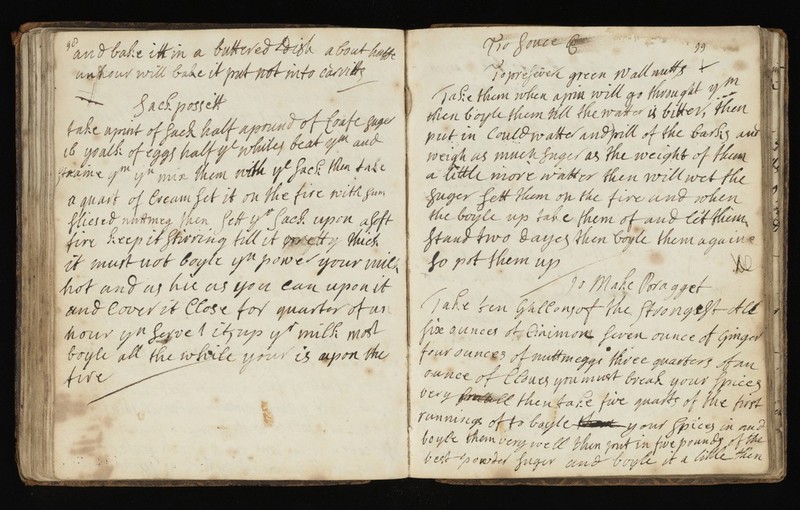 98
and bake itt in a buttered Dish about halfe
an hour will bake it put not into carvitts
Sack possett
take a pint of Sack half a pound of Loafe Suger
16 yoalk of eggs half ye whites beat ym and
straine ym yn mix them with ye Sack then take
a quart of Cream Set it on the fire with sum
Sliesed nuttmeg then Sett yr Sack upon a Soft
fire keep it Stirring till it pretty thick
it must not boyle yn power your milk
hot and as hie as you can upon it
and Cover it Close for quarter of an
hour yn Serve it up yr milk most
boyle all the while your is upon the
fire
99
To Souce
To preserve green Wallnutts
Take them when a pin will go throught ym
then boyle them till the watter is bitter, then
put in Could watter and pill of the barks and
weigh as much Suger as the weight of them
a little more watter then will wet the
Suger Sett them on the fire and when
the boyle up take them of and let them
Stand two Dayes then boyle them againe
So pot them up
To Make Poragget
Take ten Gallons of the Strongest All
six ounces of Cinimon Seven ounce of Ginger
four ounces of nuttmeggs three quarters of an
ounce of Cloves you must break your Spices
very then take five quarts of the first
runnings of to boyle your Spices in and
boyle them very well then put in five pounds of the
best powder Suger and boyle it a little then